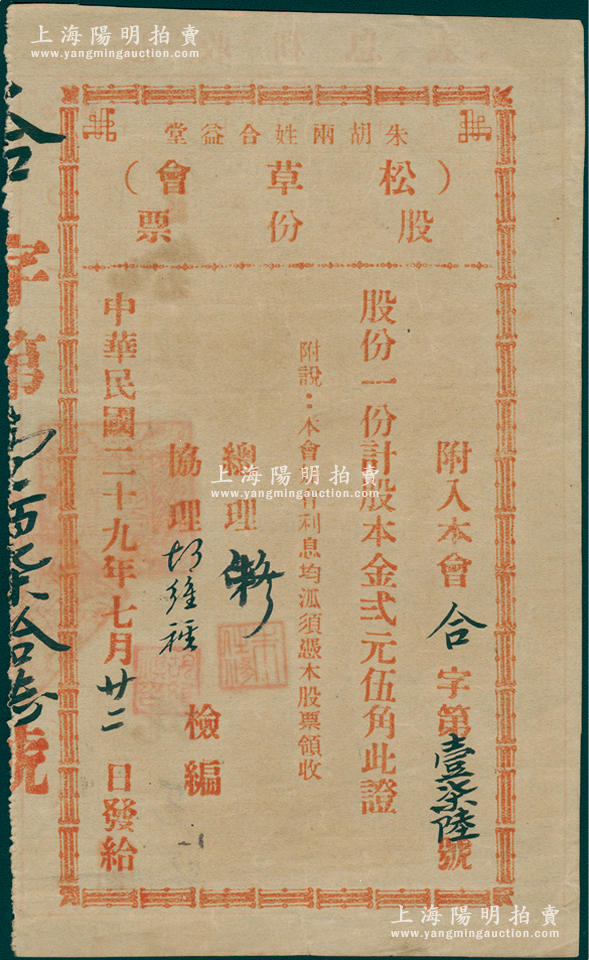 上海陽明拍賣
www.yangmingauction.com
朱胡兩姓合益堂
（松草會）
股份票
附入本會合字第壹柒陸號
股份一份計股本金弍元伍角此證
附說：本會
利息均派須憑本股票領收
總理
協理胡維程
檢編
中華民國二十九年七月廿二日發給
合字第
佰柒拾
號
上海陽明拍賣
www.yangmingauction.com
上海陽明拍賣
www.yangmingauction.com